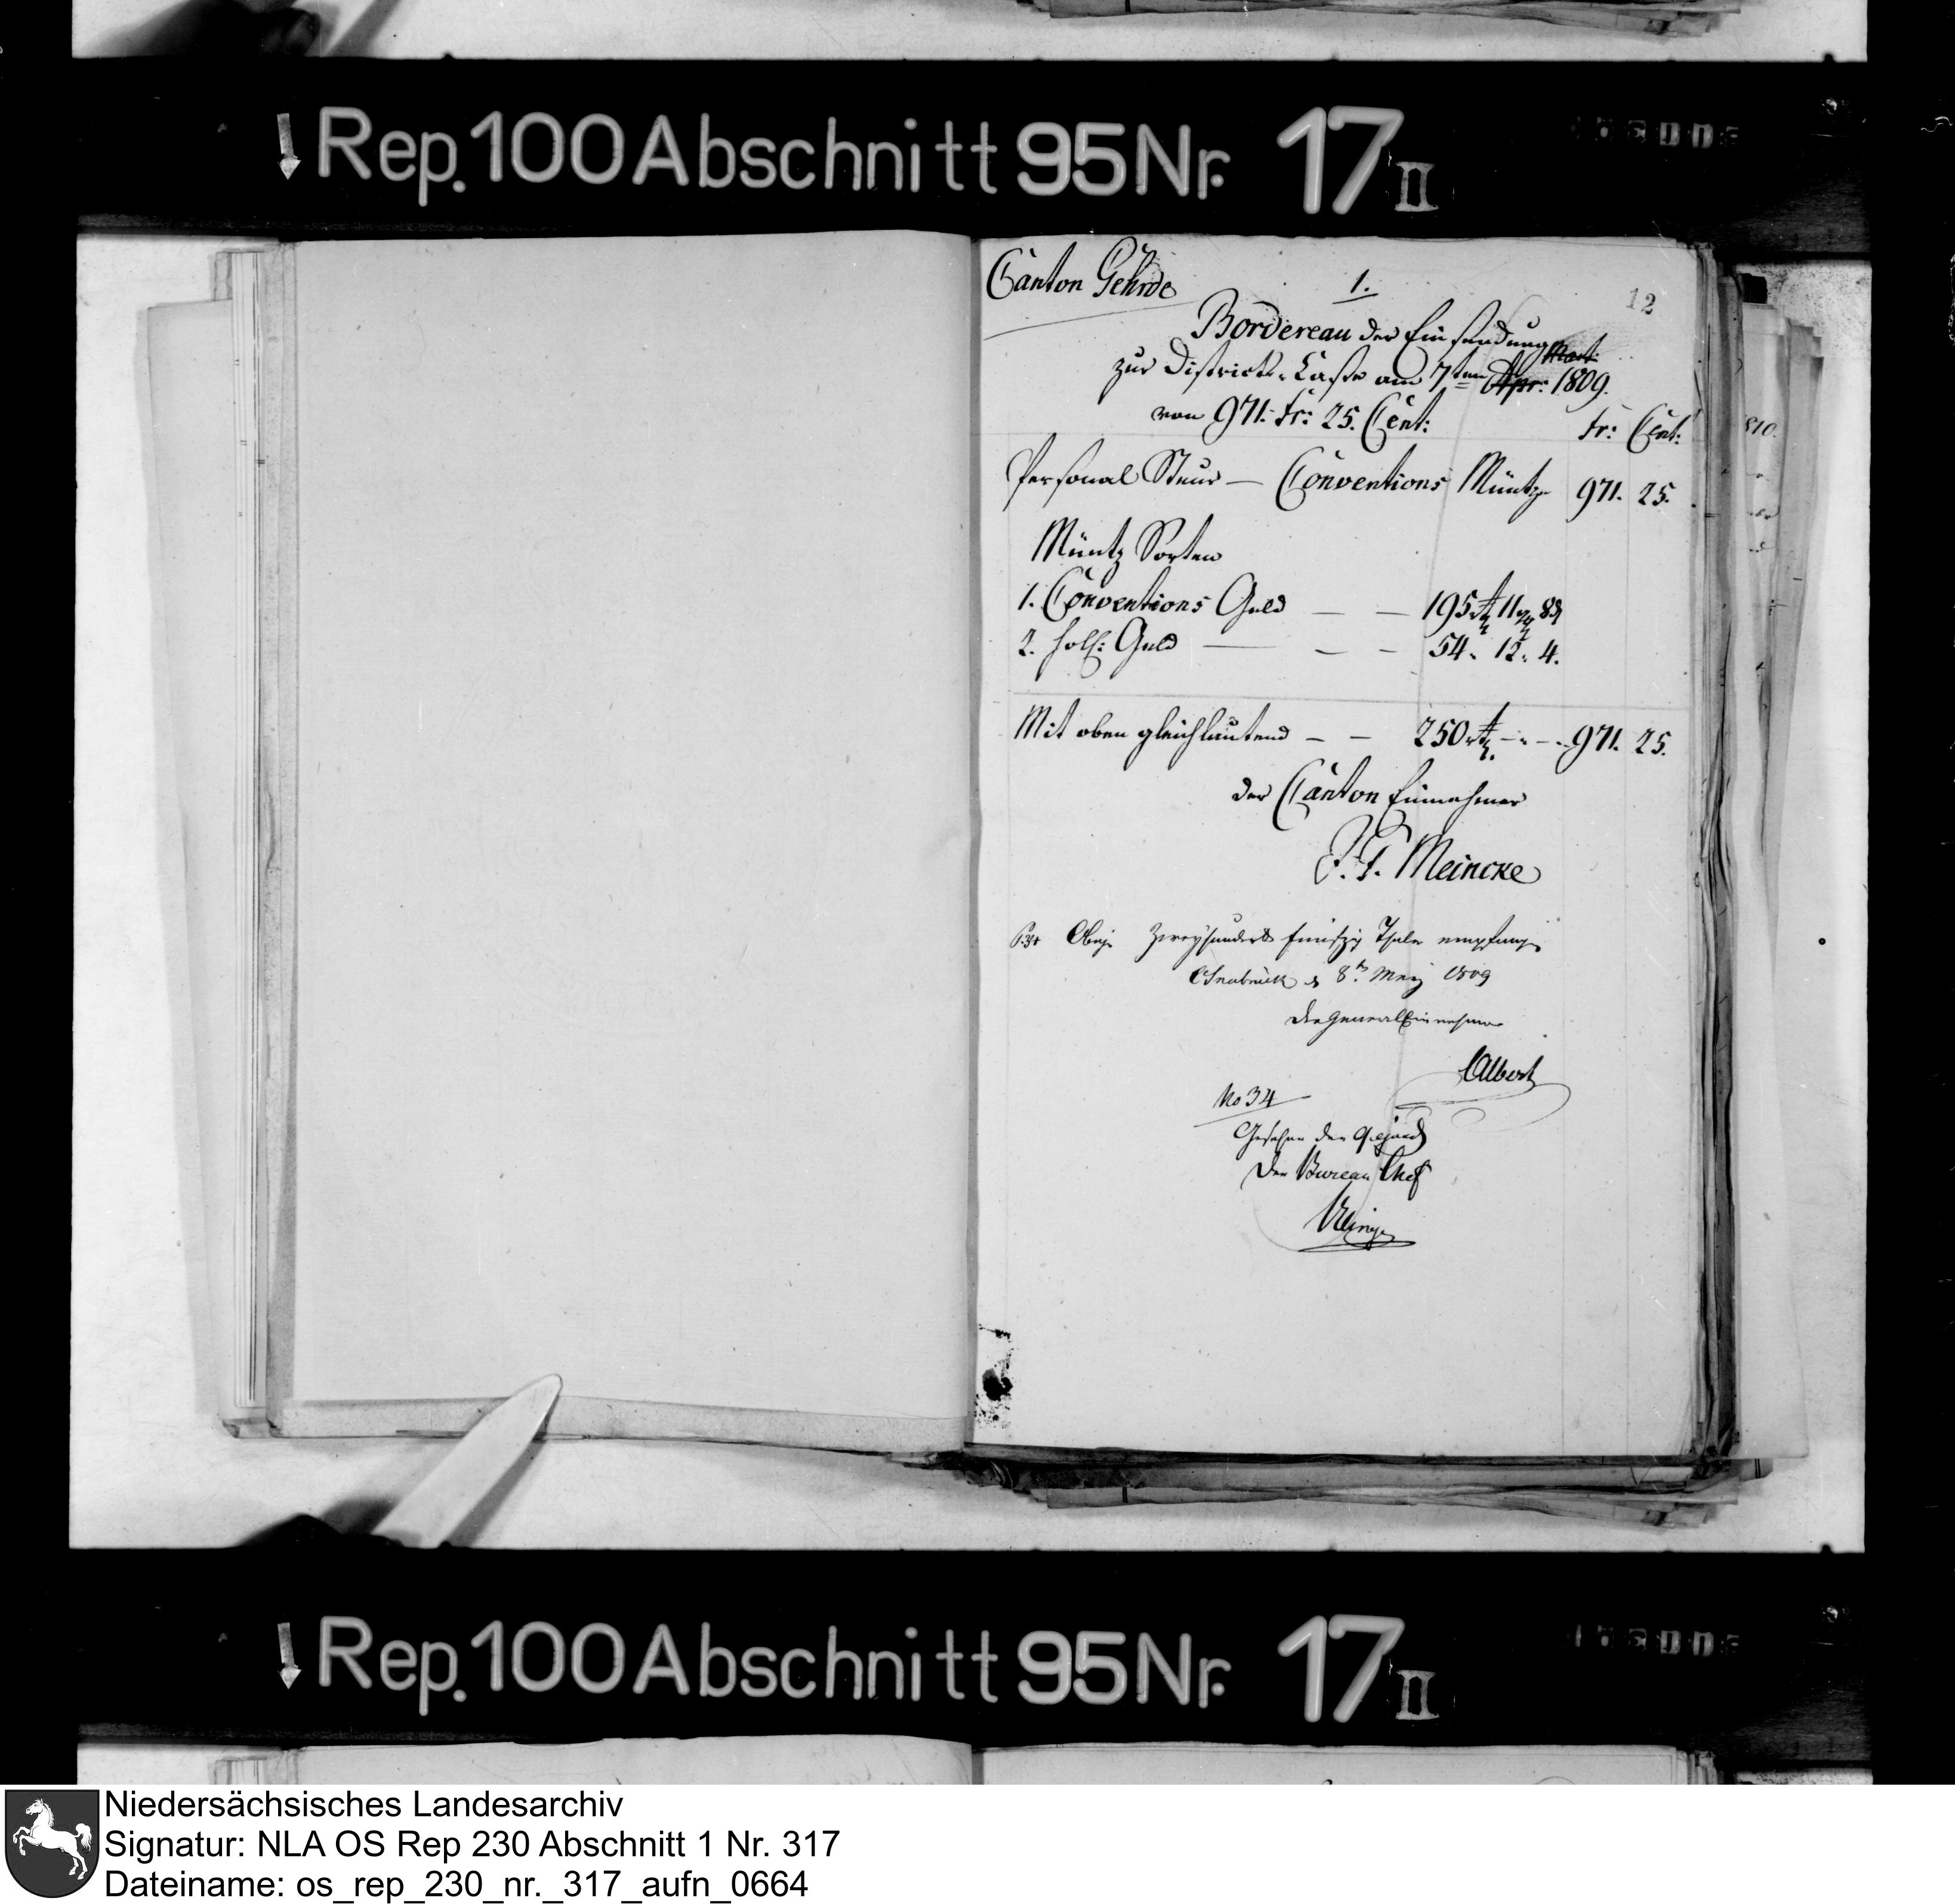 Rep. 100 Abschnitt 95 Nr. 17 II
Canton Gehrde
1.
12
Bordereau der Einsendung
zur Districts-Casse am 7ten Apr: Maii 1809.
von 971. Fr: 25. Cent:
Fr: Cent:
Personal Steur — Conventions Müntze 971. 25.
Müntz Sorten
1. Conventions Geld — — 195 rt 11 gg 8 d
2. holl: Geld — — — 54. 12. 4.
Mit oben gleichlautend — — 250 rt — „ — „ 971. 25.
der Canton Einnehmer
J. F. Meincke
Obige Zweyhundert funfzig Thaler empfangen
Osnabrück d 8t May 1809
Der General Einnehmer
Albert
No 34
Gesehen der
Der Bureau Chef
810.
Rep. 100 Abschnitt 95 Nr. 17 II
Niedersächsisches Landesarchiv
Signatur: NLA OS Rep 230 Abschnitt 1 Nr. 317
Dateiname: os_rep_230_nr._317_aufn_0664